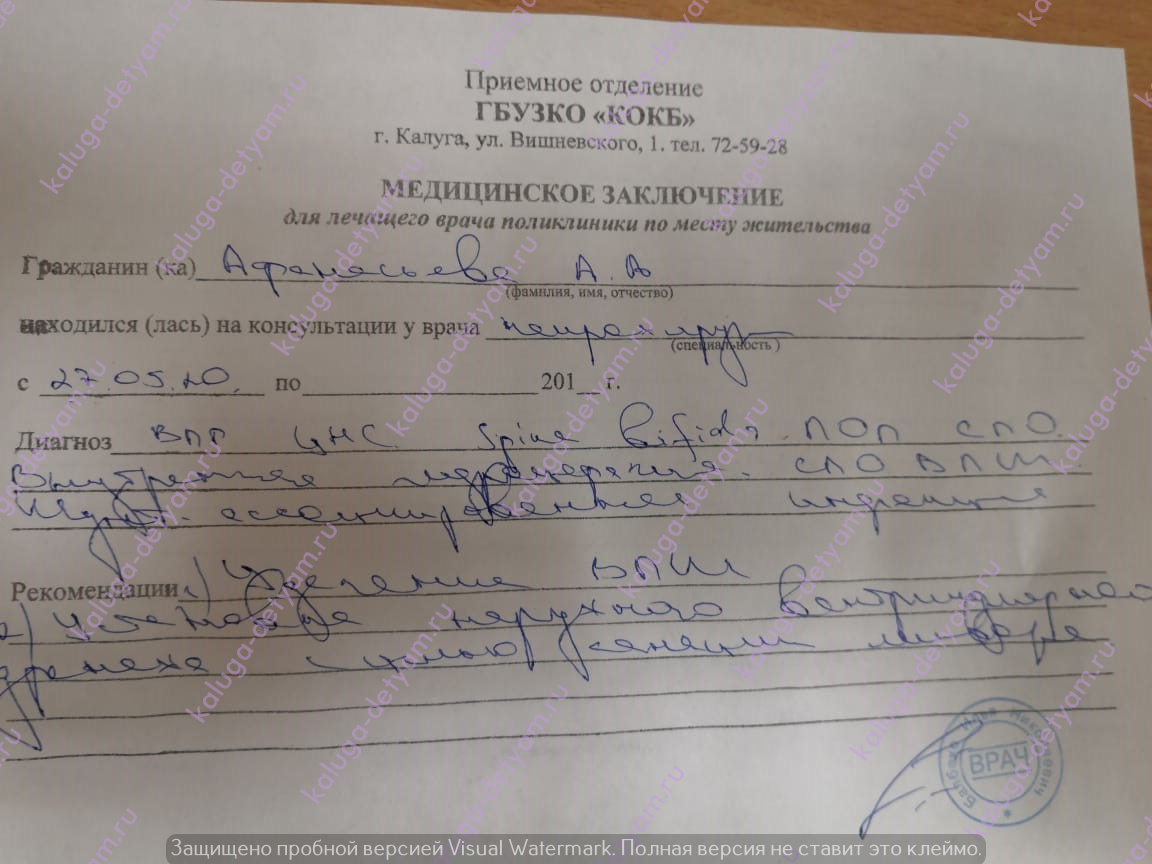 Приемное отделение
ГБУЗКО «КОКБ»
г. Калуга, ул. Вишневского, 1. тел. 72-59-28
МЕДИЦИНСКОЕ ЗАКЛЮЧЕНИЕ
для лечащего врача поликлиники по месту жительства
Гражданин (ка) Афанасьева А. А
(фамилия, имя, отчество)
находился (лась) на консультации у врача нейрохирург
(специальность )
с 27.05.20. по 201 г.
Диагноз ВПР ЦНС. Spina bifida. ПОП СПО.
Внутренняя гидроцефалия. СПО ВПШ.
Шунт-ассоциированная инфекция
Рекомендации 1) Удаление ВПШ
2) Установка наружного вентрикулярного
дренажа с целью санации ликвора
ВРАЧ
kaluga-detyam.ru
Защищено пробной версией Visual Watermark. Полная версия не ставит это клеймо.